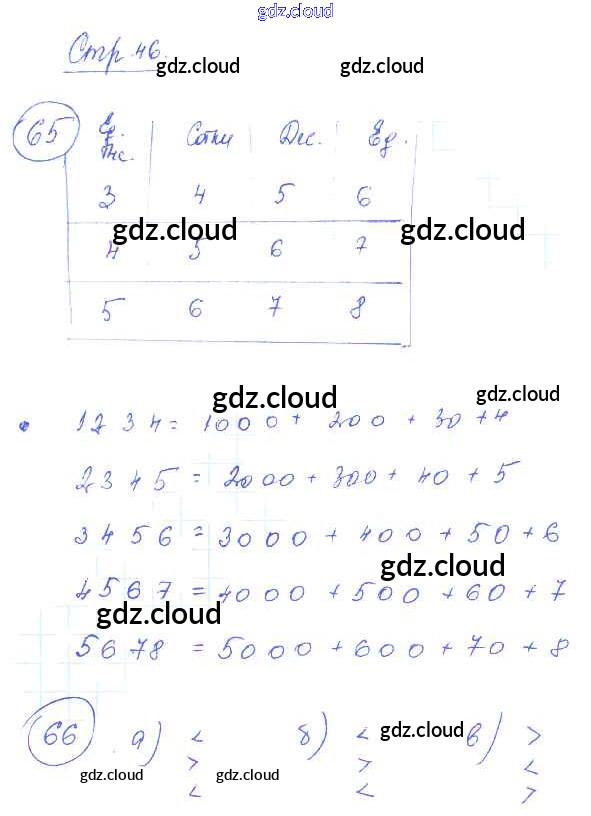 gdz.cloud
Стр. 46.
gdz.cloud gdz.cloud
65 Ед. тыс. Сотни Дес. Ед.
3 4 5 6
gdz.cloud gdz.cloud
4 5 6 7
5 6 7 8
gdz.cloud gdz.cloud
1234 = 1000 + 200 + 30 + 4
2345 = 2000 + 300 + 40 + 5
3456 = 3000 + 400 + 50 + 6
gdz.cloud
4567 = 4000 + 500 + 60 + 7
gdz.cloud
5678 = 5000 + 600 + 70 + 8
66 а) < б) < в) >
gdz.cloud
> > <
gdz.cloud gdz.cloud gdz.cloud
< < >